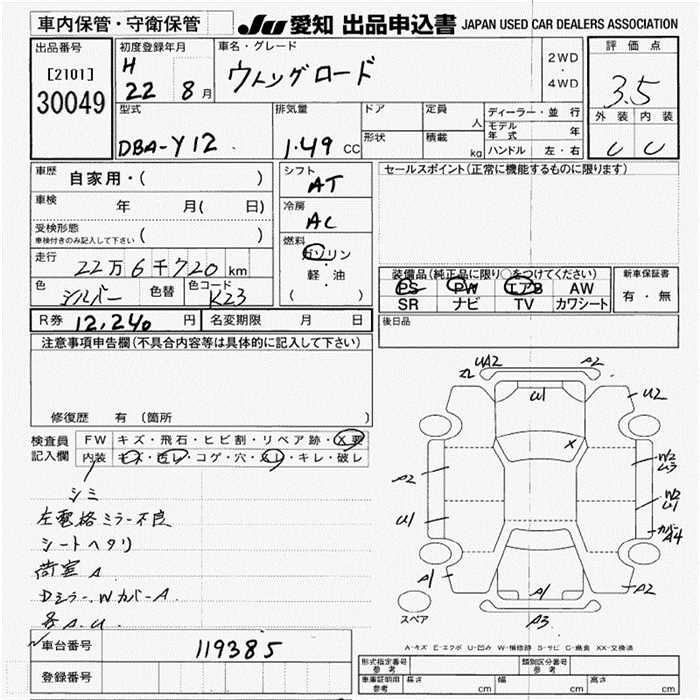 車内保管・守衛保管 JU 愛知 出品申込書 JAPAN USED CAR DEALERS ASSOCIATION
出品番号 初度登録年月 車名・グレード 2WD・4WD 評価点
[2101] H
30049 22 8月 ウイングロード 3.5
外装 内装
型式 排気量 ドア 定員 人 ディーラー・並行
モデル年式 年
DBA-Y12 1.49 CC 形状 積載 kg ハンドル 左・右 C C
車歴 自家用・( ) シフト AT セールスポイント(正常に機能するものに限ります)
車検 年 月( 日) 冷房 AC
受検形態 ( )
車検付きのみ記入して下さい
燃料 ガソリン
軽・油
( )
走行 22万6千720km
装備品(純正品に限り○をつけてください) 新車保証書
色 シルバー 色替 色コード K23 PS PW エアB AW 有・無
SR ナビ TV カワシート
R券 12,240円 名変期限 月 日 後日品
注意事項申告欄(不具合内容等は具体的に記入して下さい)
修復歴 有 (箇所 )
検査員 FW キズ・飛石・ヒビ割・リペア跡・X要
記入欄 内装 キズ・汚レ・コゲ・穴・スレ・キレ・破レ
シミ
左電格ミラー不良
シートヘタリ
荷室A
Dミラー、Wカバー A
各A.U.
UA2 A2
U1 U2
X
A2 W2
U3
U1 W2
U1
カバー
A4
A1 A1 A2
A3
スペア
A-キズ E-エクボ U-凹み W-補修跡 S-サビ C-腐食 XX-交換済
車台番号 119385
登録番号
形式指定番号 参考 類別区分番号 参考
車庫証明用 参考 長さ cm 幅 cm 高さ cm